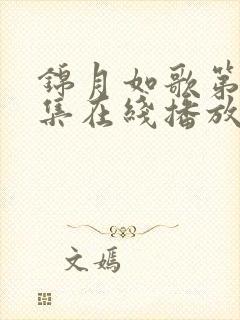 錦月如歌第
集在綫播放
文嫣